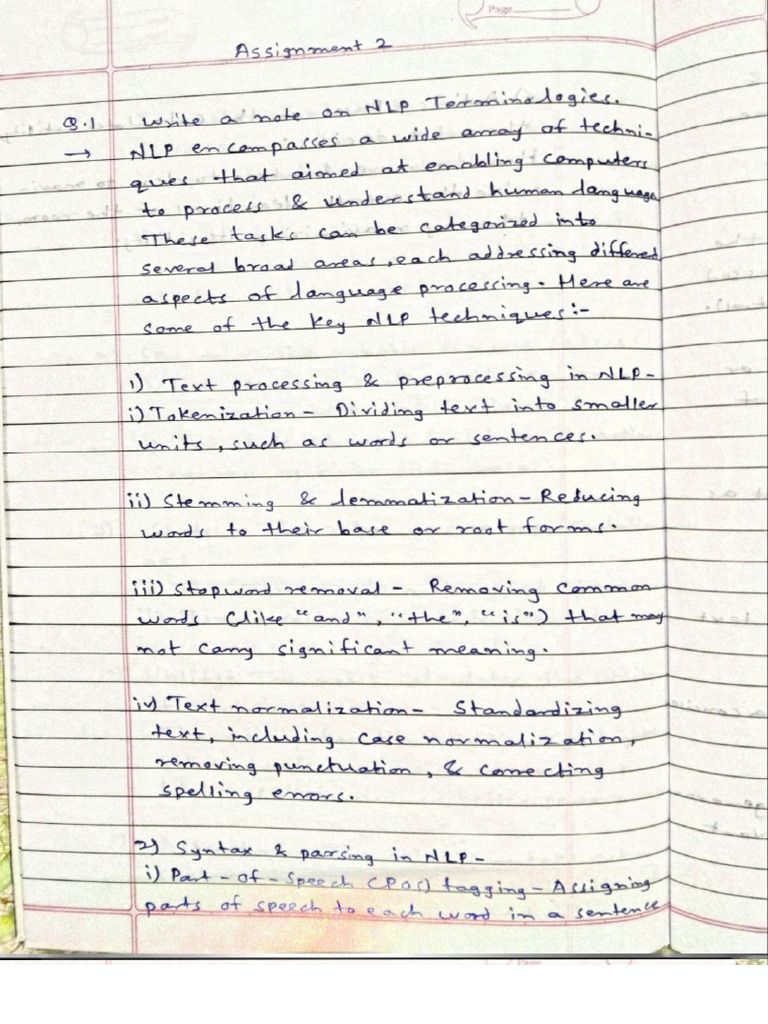 Page
Assignment 2
Q.1 Write a note on NLP Terminologies.
→ NLP encompasses a wide array of techni-
ques that aimed at enabling computers
to process & understand human language
These tasks can be categorized into
several broad areas, each addressing different
aspects of language processing. Here are
some of the key NLP techniques:-
1) Text processing & preprocessing in NLP-
i) Tokenization- Dividing text into smaller
units, such as words or sentences.
ii) Stemming & lemmatization- Reducing
words to their base or root forms.
iii) Stopword removal - Removing common
words (like "and", "the", "is") that may
not carry significant meaning.
iv) Text normalization- Standardizing
text, including case normalization,
removing punctuation, & correcting
spelling errors.
2) Syntax & parsing in NLP-
i) Part-of-Speech (POS) tagging- Assigning
parts of speech to each word in a sentence